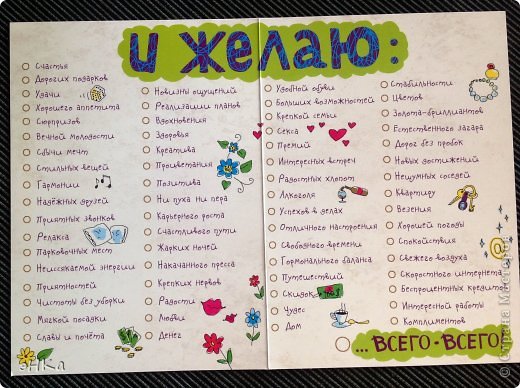 И ЖЕЛАЮ:
Счастья
Дорогих подарков
Удачи
Хорошего аппетита
Сюрпризов
Вечной молодости
Сбычи мечт
Стильных вещей
Гармонии
Надёжных друзей
Приятных звонков
Релакса
Парковочных мест
Неиссякаемой энергии
Приятностей
Чистоты без уборки
Мягкой посадки
Славы и почёта
Новизны ощущений
Реализации планов
Вдохновения
Здоровья
Креатива
Процветания
Позитива
Ни пуха ни пера
Карьерного роста
Счастливого пути
Жарких ночей
Накачанного пресса
Крепких нервов
Радости
Любви
Денег
Удобной обуви
Больших возможностей
Крепкой семьи
Секса
Премий
Интересных встреч
Радостных хлопот
Алкоголя
Успехов в делах
Отличного настроения
Свободного времени
Гормонального баланса
Путешествий
Скидок
Чудес
Дом
Стабильности
Цветов
Золота-бриллиантов
Естественного загара
Дорог без пробок
Новых достижений
Нешумных соседей
Квартиру
Везения
Хорошей погоды
Спокойствия
Свежего воздуха
Скоростного интернета
Беспроцентных кредитов
Интересной работы
Комплиментов
...ВСЕГО-ВСЕГО!
@
© Страна Мастеров